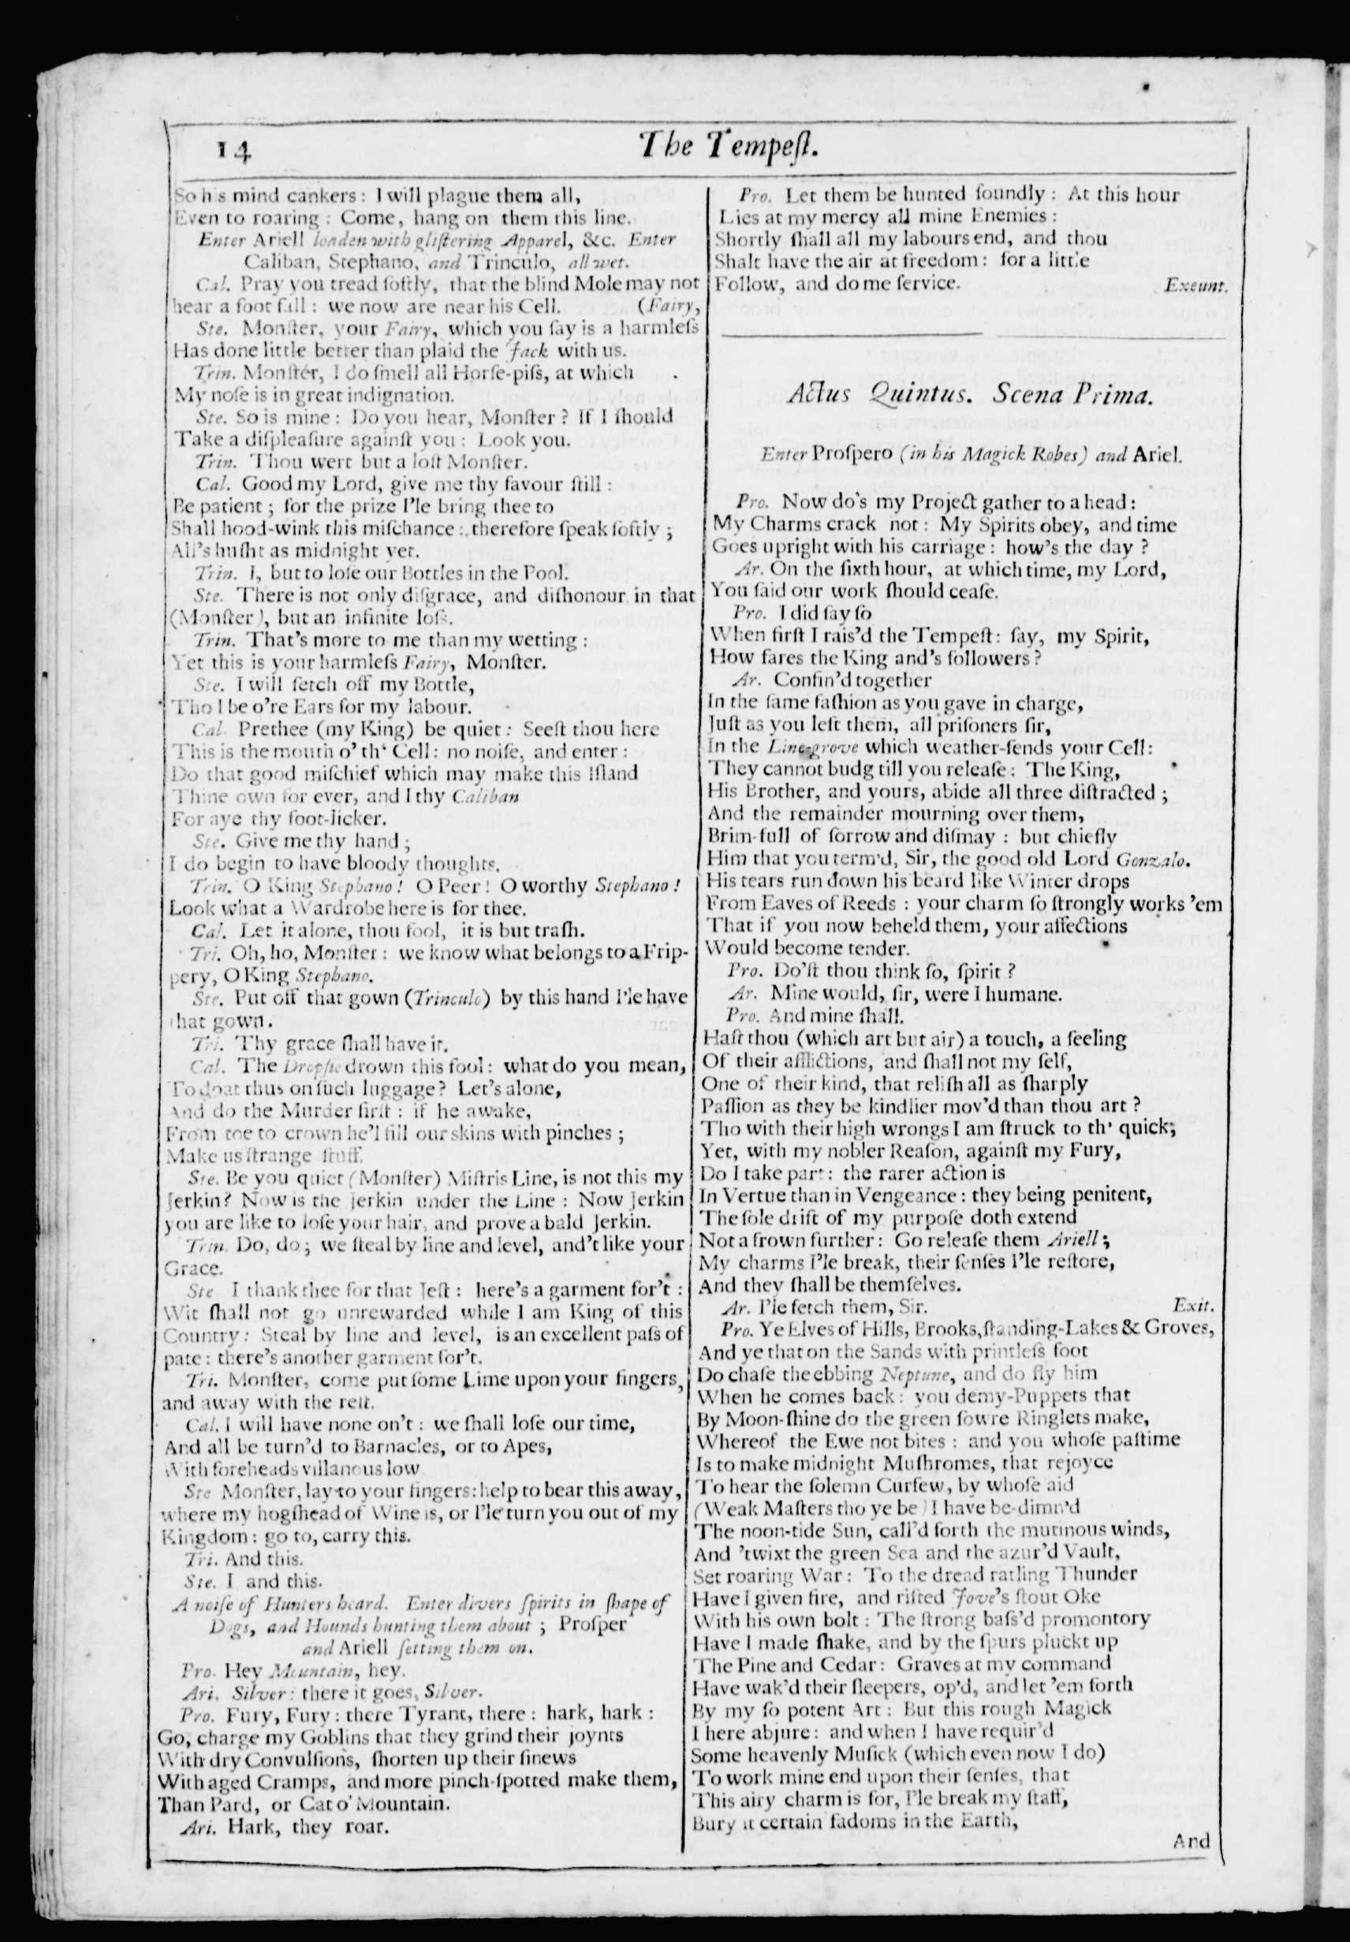 14
The Tempeſt.
So h s mind cankers: I will plague them all,
Even to roaring: Come, hang on them this line.
Enter Ariell loaden with gliſtering Apparel, &c. Enter
Caliban, Stephano, and Trinculo, all wet.
Cal. Pray you tread ſoftly, that the blind Mole may not
hear a foot fall: we now are near his Cell. (Fairy,
Ste. Monſter, your Fairy, which you ſay is a harmleſs
Has done little better than plaid the Jack with us.
Trin. Monſter, I do ſmell all Horſe-piſs, at which
My noſe is in great indignation.
Ste. So is mine: Do you hear, Monſter? If I ſhould
Take a diſpleaſure againſt you: Look you.
Trin. Thou wert but a loſt Monſter.
Cal. Good my Lord, give me thy favour ſtill:
Be patient; for the prize I'le bring thee to
Shall hood-wink this miſchance: therefore ſpeak ſoftly;
All's huſht as midnight yet.
Trin. I, but to loſe our Bottles in the Pool.
Ste. There is not only diſgrace, and diſhonour in that
(Monſter), but an infinite loſs.
Trin. That's more to me than my wetting:
Yet this is your harmleſs Fairy, Monſter.
Ste. I will fetch off my Bottle,
Tho I be o're Ears for my labour.
Cal. Prethee (my King) be quiet: Seeſt thou here
This is the mouth o' th' Cell: no noiſe, and enter:
Do that good miſchief which may make this Iſland
Thine own for ever, and I thy Caliban
For aye thy foot-licker.
Ste. Give me thy hand;
I do begin to have bloody thoughts.
Trin. O King Stephano! O Peer! O worthy Stephano!
Look what a Wardrobe here is for thee.
Cal. Let it alone, thou fool, it is but traſh.
Tri. Oh, ho, Monſter: we know what belongs to a Frip-
pery, O King Stephano.
Ste. Put off that gown (Trinculo) by this hand I'le have
that gown.
Tri. Thy grace ſhall have it.
Cal. The Dropſie drown this fool: what do you mean,
To doat thus on ſuch luggage? Let's alone,
And do the Murder firſt: if he awake,
From toe to crown he'l fill our skins with pinches;
Make us ſtrange ſtuff.
Ste. Be you quiet (Monſter) Miſtris Line, is not this my
Jerkin? Now is the Jerkin under the Line: Now Jerkin
you are like to loſe your hair, and prove a bald Jerkin.
Trin. Do, do; we ſteal by line and level, and't like your
Grace.
Ste I thank thee for that Jeſt: here's a garment for't:
Wit ſhall not go unrewarded while I am King of this
Country: Steal by line and level, is an excellent paſs of
pate: there's another garment for't.
Tri. Monſter, come put ſome Lime upon your fingers,
and away with the reſt.
Cal. I will have none on't: we ſhall loſe our time,
And all be turn'd to Barnacles, or to Apes,
With foreheads villanous low
Ste Monſter, lay to your fingers: help to bear this away,
where my hogſhead of Wine is, or I'le turn you out of my
Kingdom: go to, carry this.
Tri. And this.
Ste. I and this.
A noiſe of Hunters heard. Enter divers ſpirits in ſhape of
Dogs, and Hounds hunting them about; Proſper
and Ariell ſetting them on.
Pro. Hey Mountain, hey.
Ari. Silver: there it goes, Silver.
Pro. Fury, Fury: there Tyrant, there: hark, hark:
Go, charge my Goblins that they grind their joynts
With dry Convulſions, ſhorten up their ſinews
With aged Cramps, and more pinch-ſpotted make them,
Than Pard, or Cat o' Mountain.
Ari. Hark, they roar.
Pro. Let them be hunted ſoundly: At this hour
Lies at my mercy all mine Enemies:
Shortly ſhall all my labours end, and thou
Shalt have the air at freedom: for a little
Follow, and do me ſervice. Exeunt.
Actus Quintus. Scena Prima.
Enter Proſpero (in his Magick Robes) and Ariel.
Pro. Now do's my Project gather to a head:
My Charms crack not: My Spirits obey, and time
Goes upright with his carriage: how's the day?
Ar. On the ſixth hour, at which time, my Lord,
You ſaid our work ſhould ceaſe.
Pro. I did ſay ſo
When firſt I rais'd the Tempeſt: ſay, my Spirit,
How fares the King and's followers?
Ar. Confin'd together
In the ſame faſhion as you gave in charge,
Juſt as you left them, all priſoners ſir,
In the Line-grove which weather-fends your Cell:
They cannot budg till you releaſe: The King,
His Brother, and yours, abide all three diſtracted;
And the remainder mourning over them,
Brim-full of ſorrow and diſmay: but chiefly
Him that you term'd, Sir, the good old Lord Gonzalo.
His tears run down his beard like Winter drops
From Eaves of Reeds: your charm ſo ſtrongly works 'em
That if you now beheld them, your affections
Would become tender.
Pro. Do'ſt thou think ſo, ſpirit?
Ar. Mine would, ſir, were I humane.
Pro. And mine ſhall.
Haſt thou (which art but air) a touch, a feeling
Of their afflictions, and ſhall not my ſelf,
One of their kind, that reliſh all as ſharply
Paſſion as they be kindlier mov'd than thou art?
Tho with their high wrongs I am ſtruck to th' quick;
Yet, with my nobler Reaſon, againſt my Fury,
Do I take part: the rarer action is
In Vertue than in Vengeance: they being penitent,
The ſole drift of my purpoſe doth extend
Not a frown further: Go releaſe them Ariell;
My charms I'le break, their ſenſes I'le reſtore,
And they ſhall be themſelves.
Ar. I'le fetch them, Sir. Exit.
Pro. Ye Elves of Hills, Brooks, ſtanding-Lakes & Groves,
And ye that on the Sands with printleſs foot
Do chaſe the ebbing Neptune, and do fly him
When he comes back: you demy-Puppets that
By Moon-ſhine do the green ſowre Ringlets make,
Whereof the Ewe not bites: and you whoſe paſtime
Is to make midnight Muſhromes, that rejoyce
To hear the ſolemn Curfew, by whoſe aid
(Weak Maſters tho ye be) I have be-dimn'd
The noon-tide Sun, call'd forth the mutinous winds,
And 'twixt the green Sea and the azur'd Vault,
Set roaring War: To the dread ratling Thunder
Have I given fire, and rifted Jove's ſtout Oke
With his own bolt: The ſtrong baſs'd promontory
Have I made ſhake, and by the ſpurs pluckt up
The Pine and Cedar: Graves at my command
Have wak'd their ſleepers, op'd, and let 'em forth
By my ſo potent Art: But this rough Magick
I here abjure: and when I have requir'd
Some heavenly Muſick (which even now I do)
To work mine end upon their ſenſes, that
This airy charm is for, I'le break my ſtaff,
Bury it certain fadoms in the Earth,
And